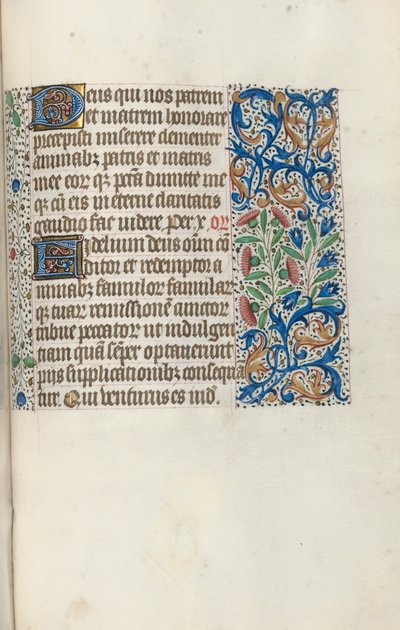 Deus qui nos patrem
et matrem honorare
precepisti miserere clementer
animabz patris et matris
mee eor qz pctā dimitte me
qz cū eis in eterne claritatis
gaudio fac videre Per x or
Fidelium deus oim cō
ditor et redemptor a
nimabz famulor famular
qz tuar remissionē cunctor
tribue peccator ut indulgen
tiam quā semper optaverūt
pijs supplicationibz consequā
tur. Qui venturus es iud.